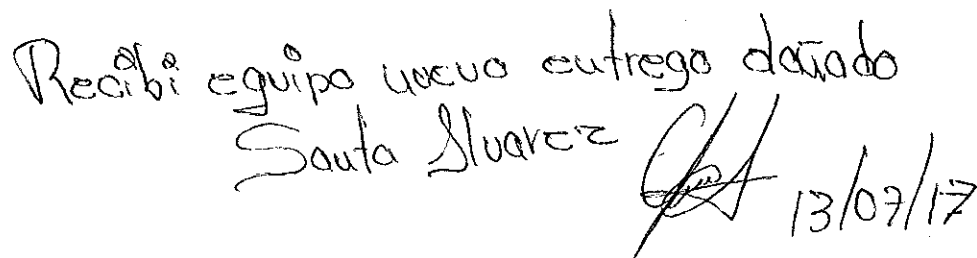 Recibi equipo nuevo entrego dañado
Santa Alvarez
13/07/17